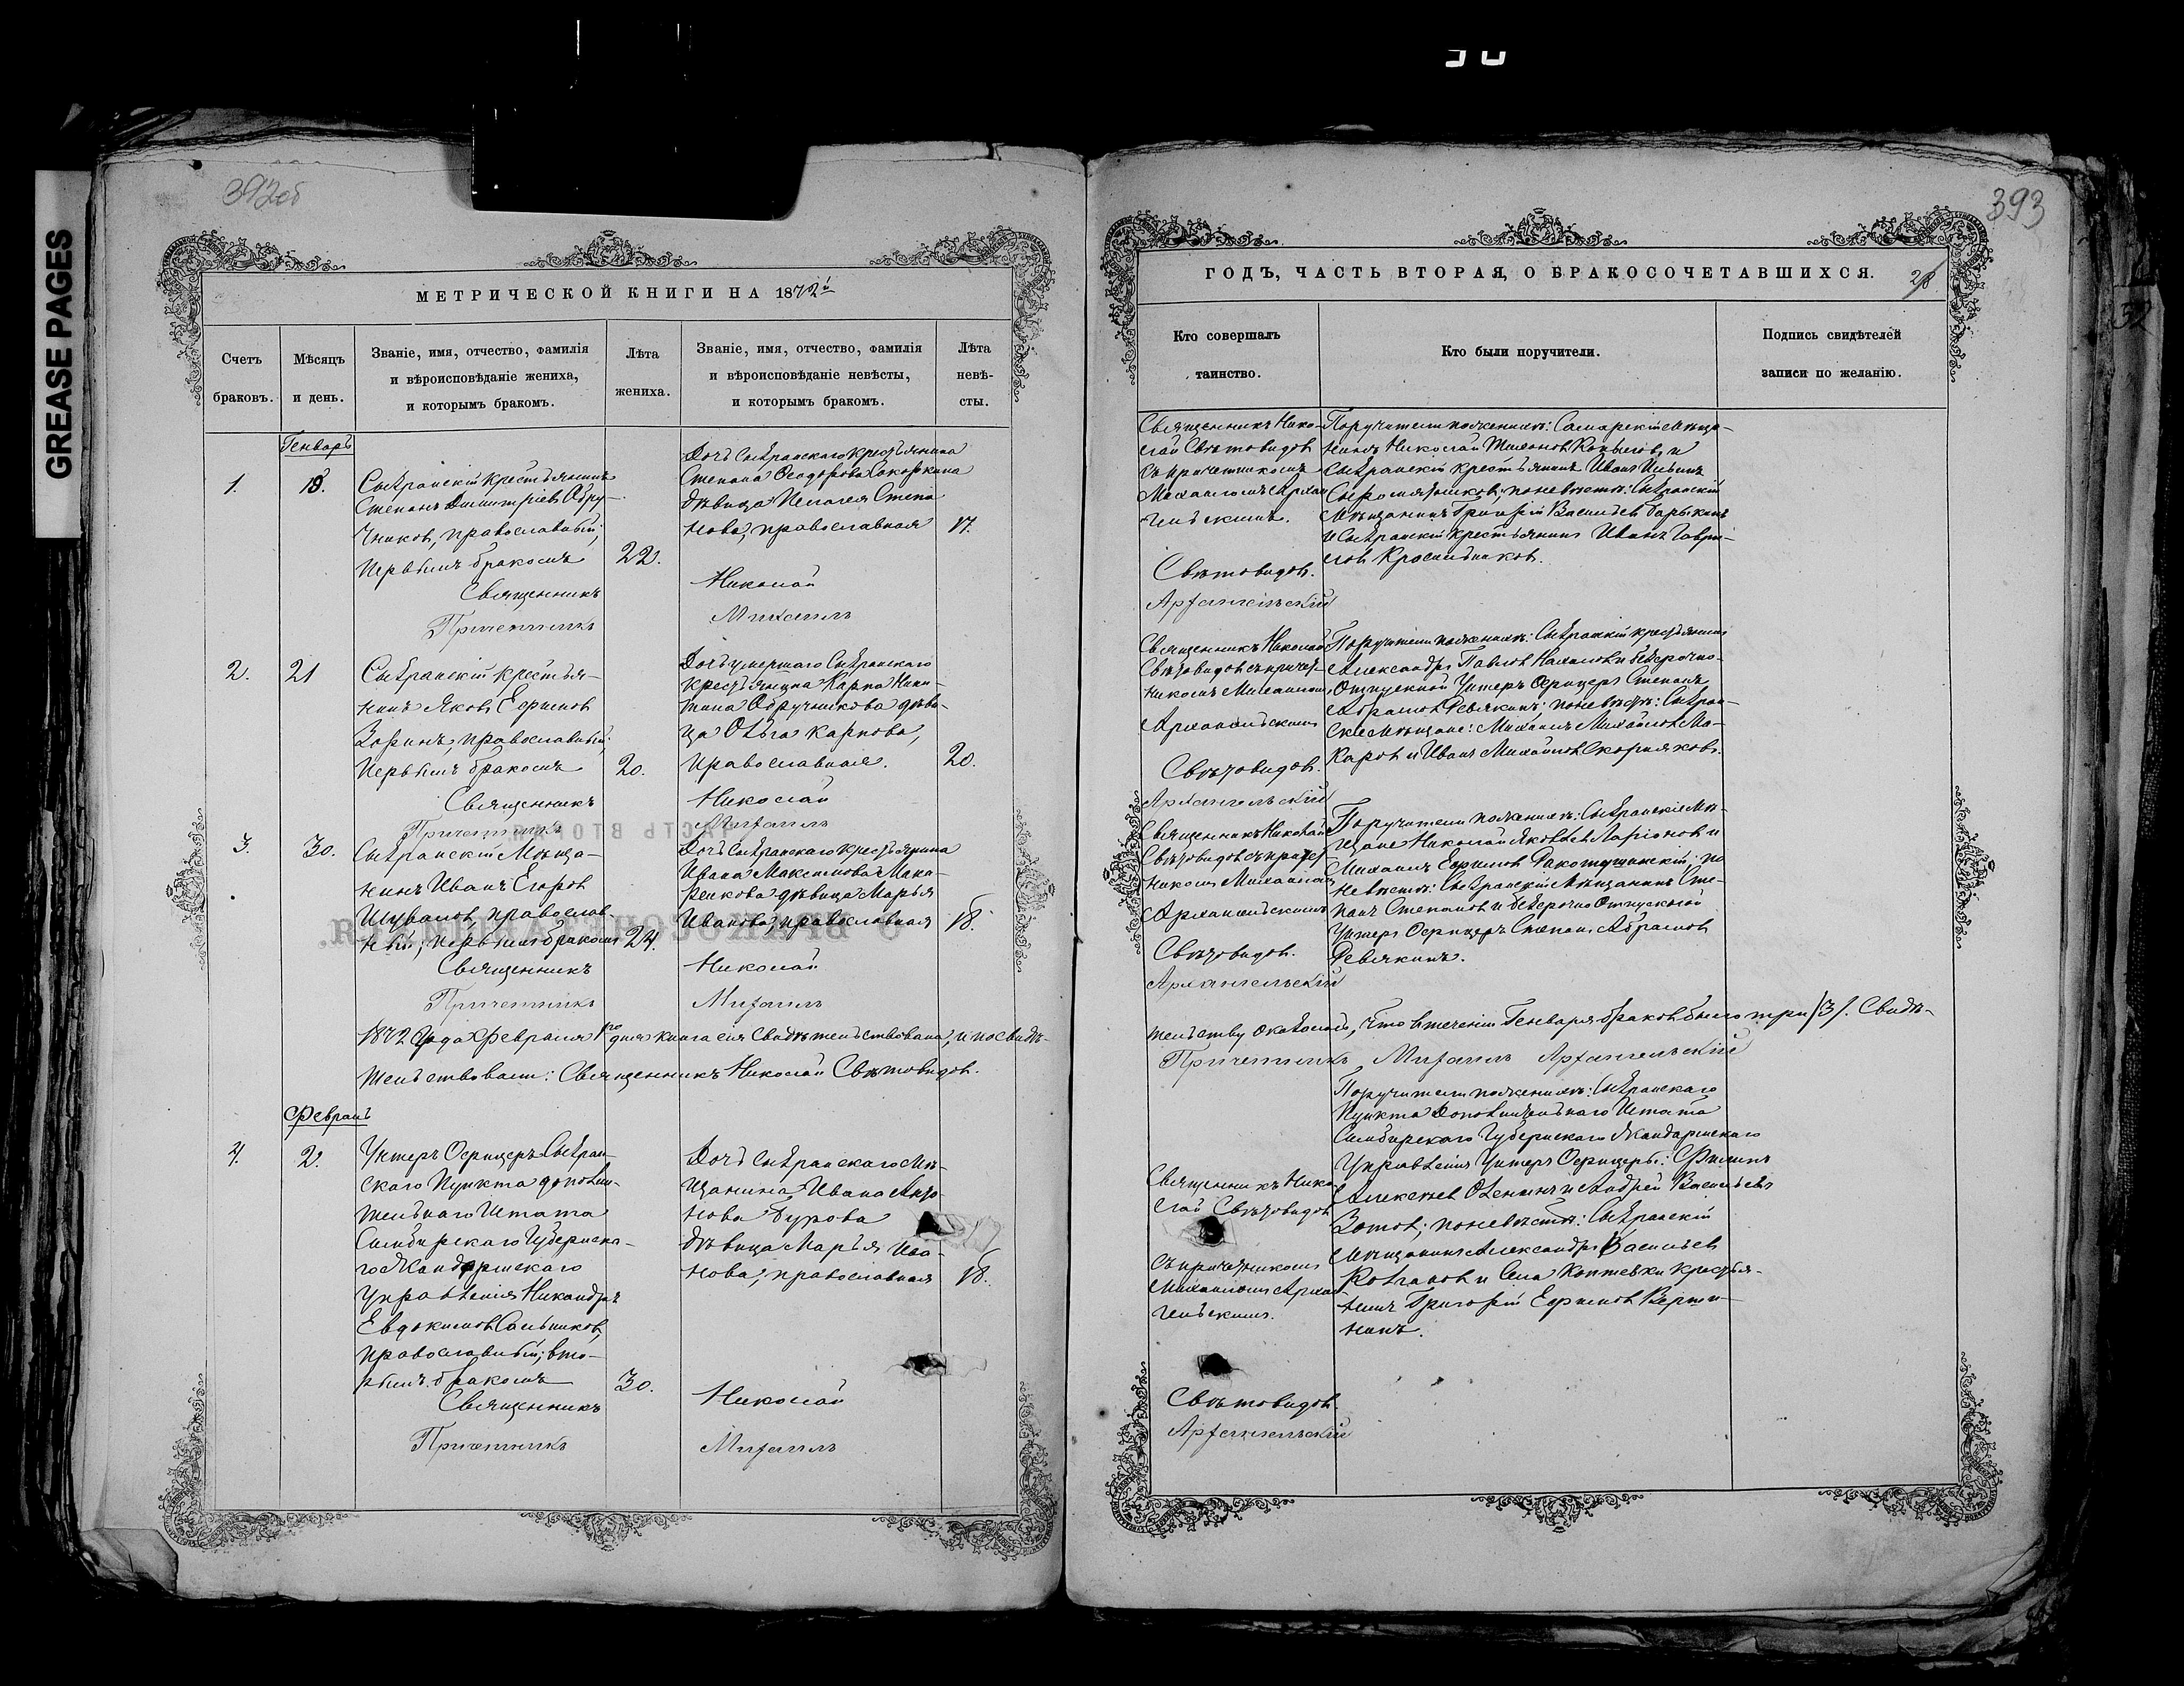 GREASE PAGES
392об
МЕТРИЧЕСКОЙ КНИГИ НА 1872й
Счетъ браковъ.
Мѣсяцъ и день.
Званіе, имя, отчество, фамилія и вѣроисповѣданіе жениха, и которымъ бракомъ.
Лѣта жениха.
Званіе, имя, отчество, фамилія и вѣроисповѣданіе невѣсты, и которымъ бракомъ.
Лѣта невѣ-
сты.
Генварь
1.
18.
Сызранскій крестьянинъ
Степанъ Димитріевъ Обру-
чниковъ, православный;
первымъ бракомъ
22.
Дочь Сызранскаго крестьянина
Степана Ѳеодорова
дѣвица Пелагея Степа
нова, православная
17.
Священникъ Николай
Причетникъ Михаилъ
2.
21
Сызранскій крестья-
нинъ Яковъ Ефимовъ
Зоринъ православный;
первымъ бракомъ
20.
Дочь умершаго Сызранскаго
крестьянина Карпа Ники-
тина Обручникова дѣви-
ца Ольга Карпова,
православная.
20.
Священникъ Николай
Причетникъ Михаилъ
3.
30.
Сызранскій Мѣща-
нинъ Иванъ Егоровъ
Шуваловъ, православ-
ный; первымъ бракомъ
24.
Дочь Сызранскаго крестьянина
Ивана Максимова
дѣвица Марья
Иванова, православная
18.
Священникъ Николай
Причетникъ Михаилъ
1872 года Февраля 1го дня книга сія свидѣтельствована, и по свидѣ-
тельствовали: Священникъ Николай Свѣтовидовъ.
Февраль
4.
2.
Унтеръ Офицеръ Сызран-
скаго Пункта дополни-
тельнаго Штата
Симбирскаго Губернска-
го Жандармскаго
Управленія Никандръ
Евдокимовъ Сальниковъ,
православный; вто-
рымъ бракомъ
30.
Дочь Сызранскаго Мѣ-
щанина Ивана Анто-
нова Бурова
дѣвица Марья Ива-
нова, православная
18.
Священникъ Николай
Причетникъ Михаилъ
393
ГОДЪ, ЧАСТЬ ВТОРАЯ, О БРАКОСОЧЕТАВШИХСЯ.
28
Кто совершалъ таинство.
Кто были поручители.
Подпись свидѣтелей записи по желанію.
Священникъ Нико-
лай Свѣтовидовъ
съ причетникомъ
Михаиломъ Архан
гельскимъ.
Свѣтовидовъ.
Архангельскій
Поручители по женихѣ: Самарскій мѣща-
нинъ Николай и
Сызранскій крестьянинъ Иванъ Ильинъ
Сыромятниковъ; по невѣстѣ: Сызранскій
мѣщанинъ Григорій Васильевъ Барыкинъ
и Сызранскій крестьянинъ Иванъ Гаври-
ловъ Красильниковъ.
Священникъ Николай
Свѣтовидовъ съ причет-
никомъ Михаиломъ
Архангельскимъ
Свѣтовидовъ.
Архангельскій
Поручители по женихѣ: Сызранскій крестьянинъ
Александръ Павловъ и безсрочно-
Отпускной Унтеръ Офицеръ Степанъ
Абрамовъ Девяткинъ; по невѣстѣ: Сызран-
скіе мѣщане: Михаилъ Михайловъ Ма-
каровъ и Иванъ Михайловъ Скорняковъ.
Священникъ Николай
Свѣтовидовъ съ причет
никомъ Михаиломъ
Архангельскимъ
Свѣтовидовъ.
Архангельскій
Поручители по женихѣ: Сызранскіе мѣ-
щане Николай Яковлевъ Ларіоновъ и
Михаилъ Ефимовъ по
невѣстѣ: Сызранскій мѣщанинъ Сте-
панъ Степановъ и безсрочно Отпускной
Унтеръ Офицеръ Степанъ Абрамовъ
Девяткинъ.
тельству оказалось, что въ теченіи Генваря браковъ было три /3/. Свидѣ-
Причетникъ Михаилъ Архангельскій
Священникъ Нико
лай Свѣтовидовъ
съ причетникомъ
Михаиломъ Архан
гельскимъ.
Свѣтовидовъ.
Архангельскій
Поручители по женихѣ: Сызранскаго
Пункта дополнительнаго Штата
Симбирскаго Губернскаго Жандармскаго
Управленія Унтеръ Офицеры: Филипъ
Алексѣевъ и Андрей Васильевъ
Зотовъ; по невѣстѣ: Сызранскій
мѣщанинъ Александръ Васильевъ
и Села Коптевки крестья-
нинъ Григорій Ефимовъ